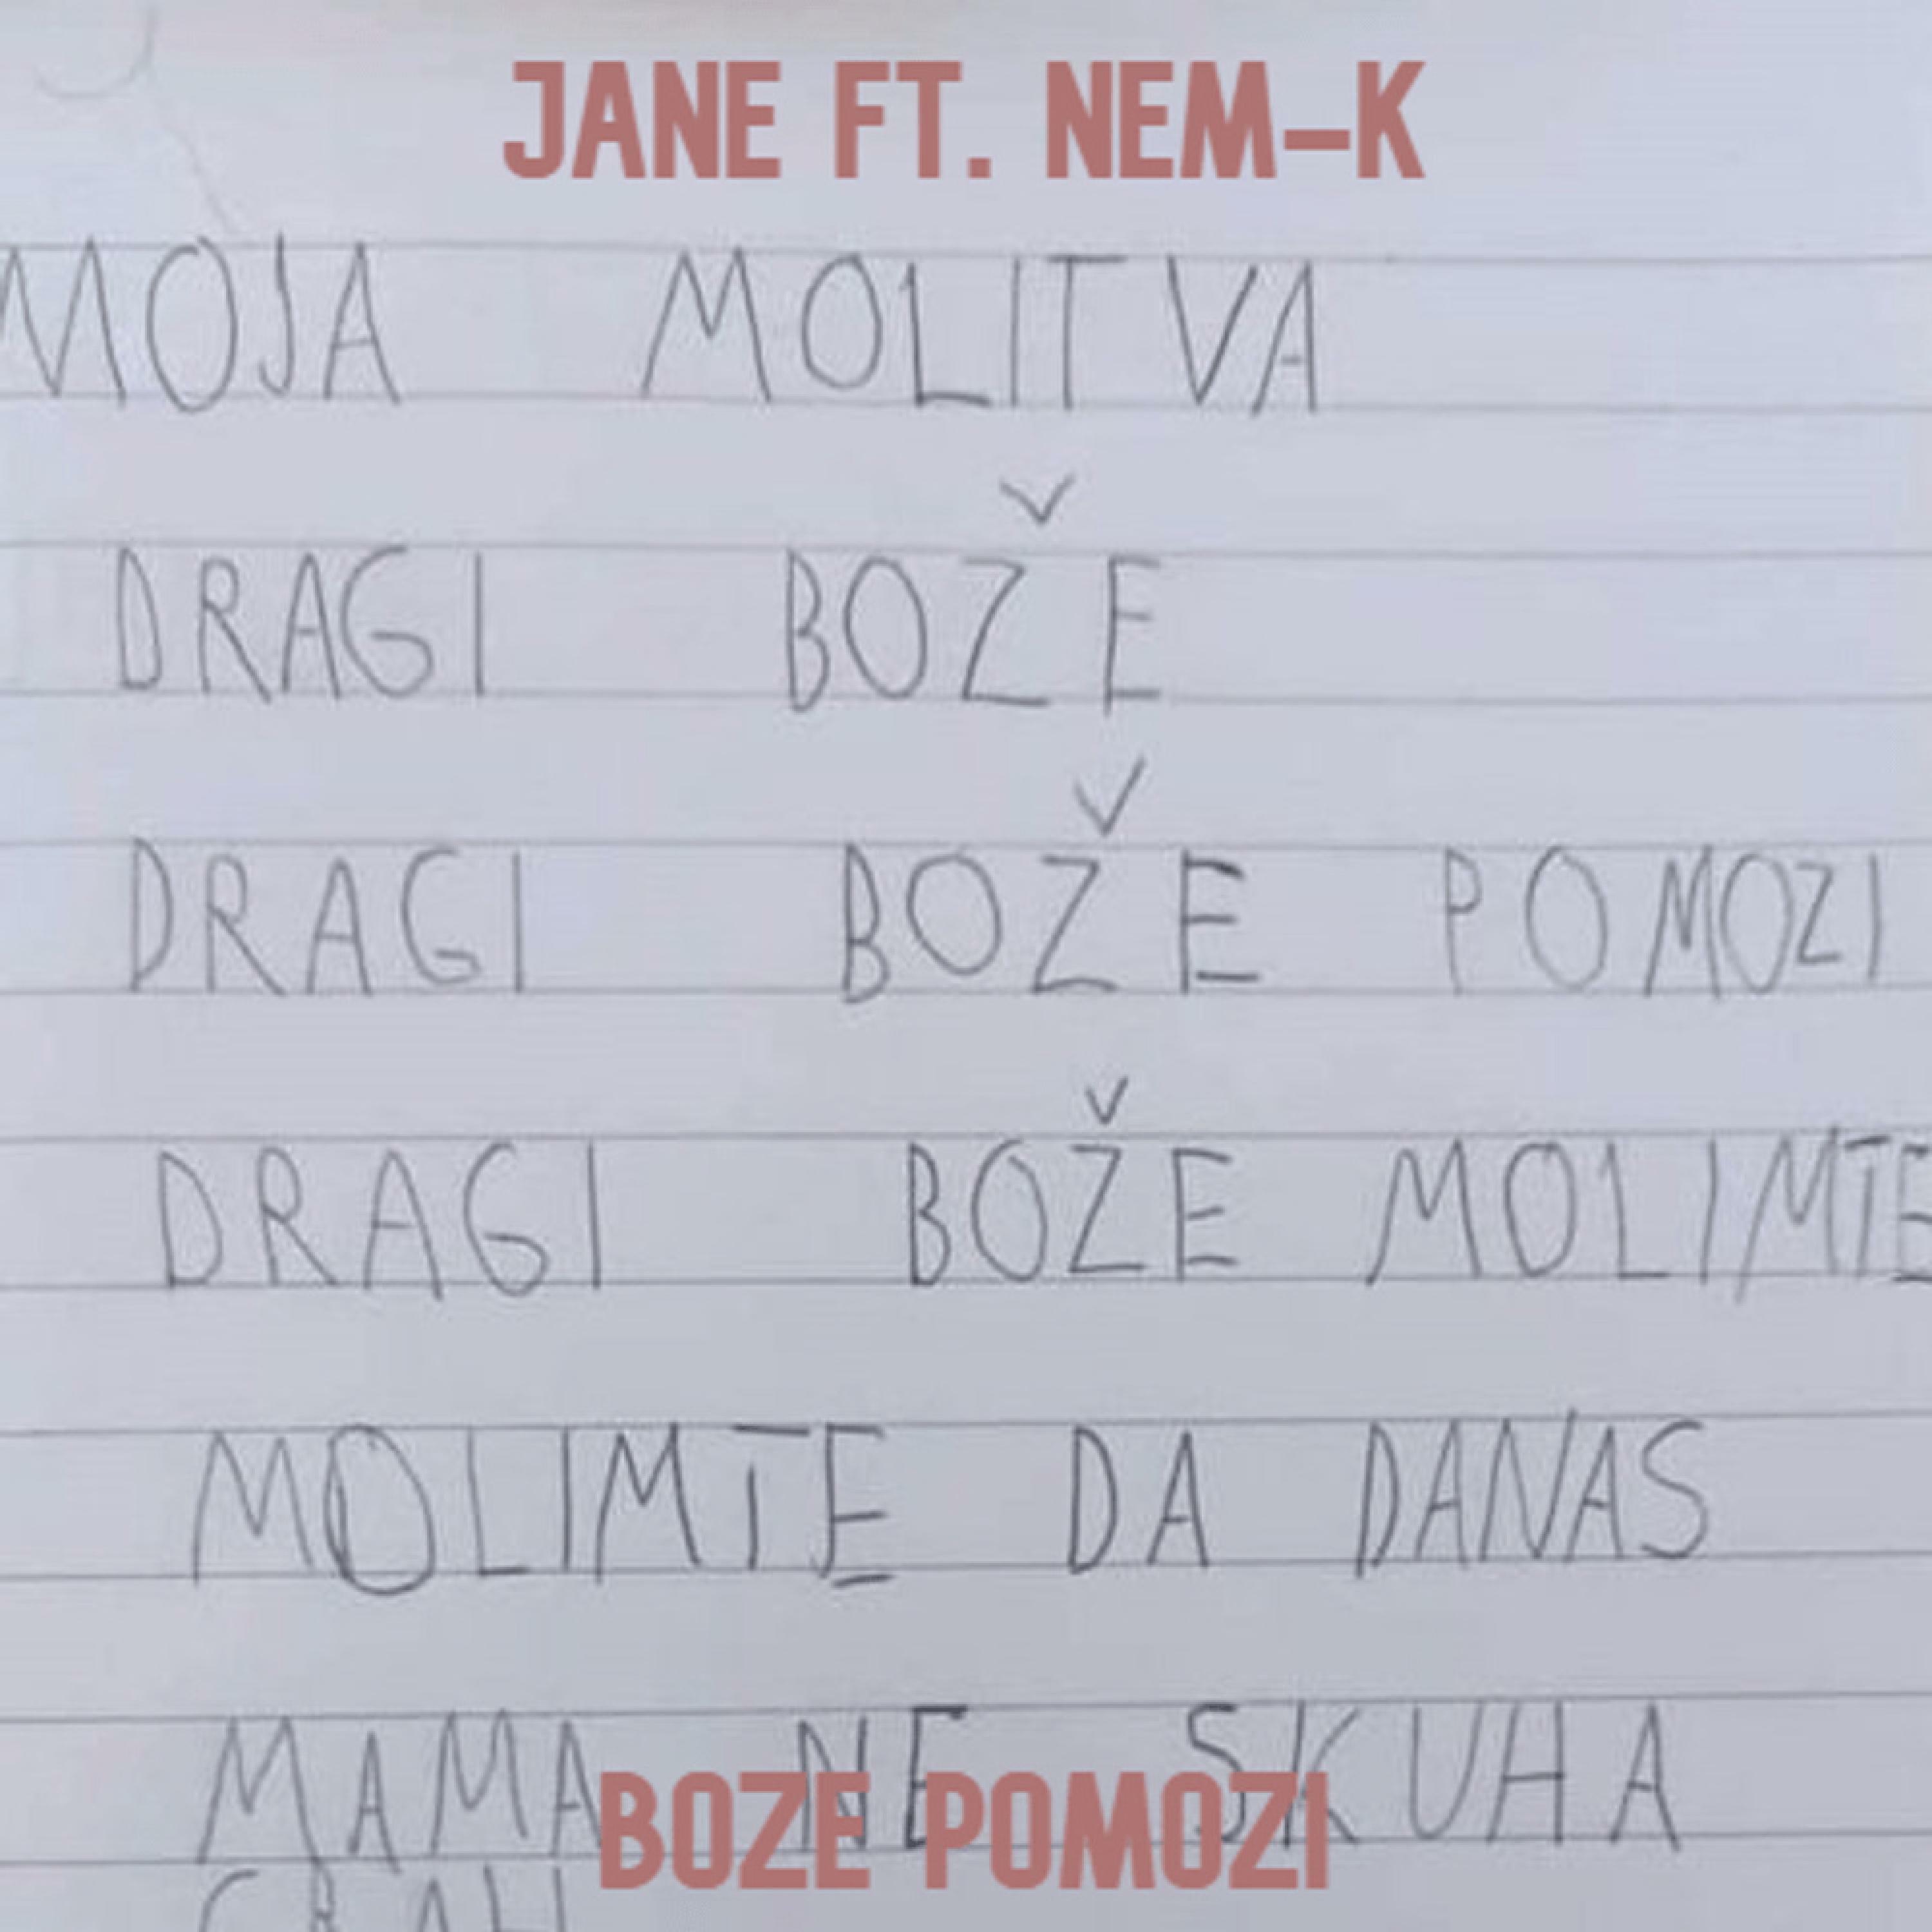 JANE FT. NEM-K
MOJA MOLITVA
DRAGI BOŽE
DRAGI BOŽE POMOZI
DRAGI BOŽE MOLIMTE
MOLIMTE DA DANAS
MAMA NE SKUHA
BOZE POMOZI
GRAH